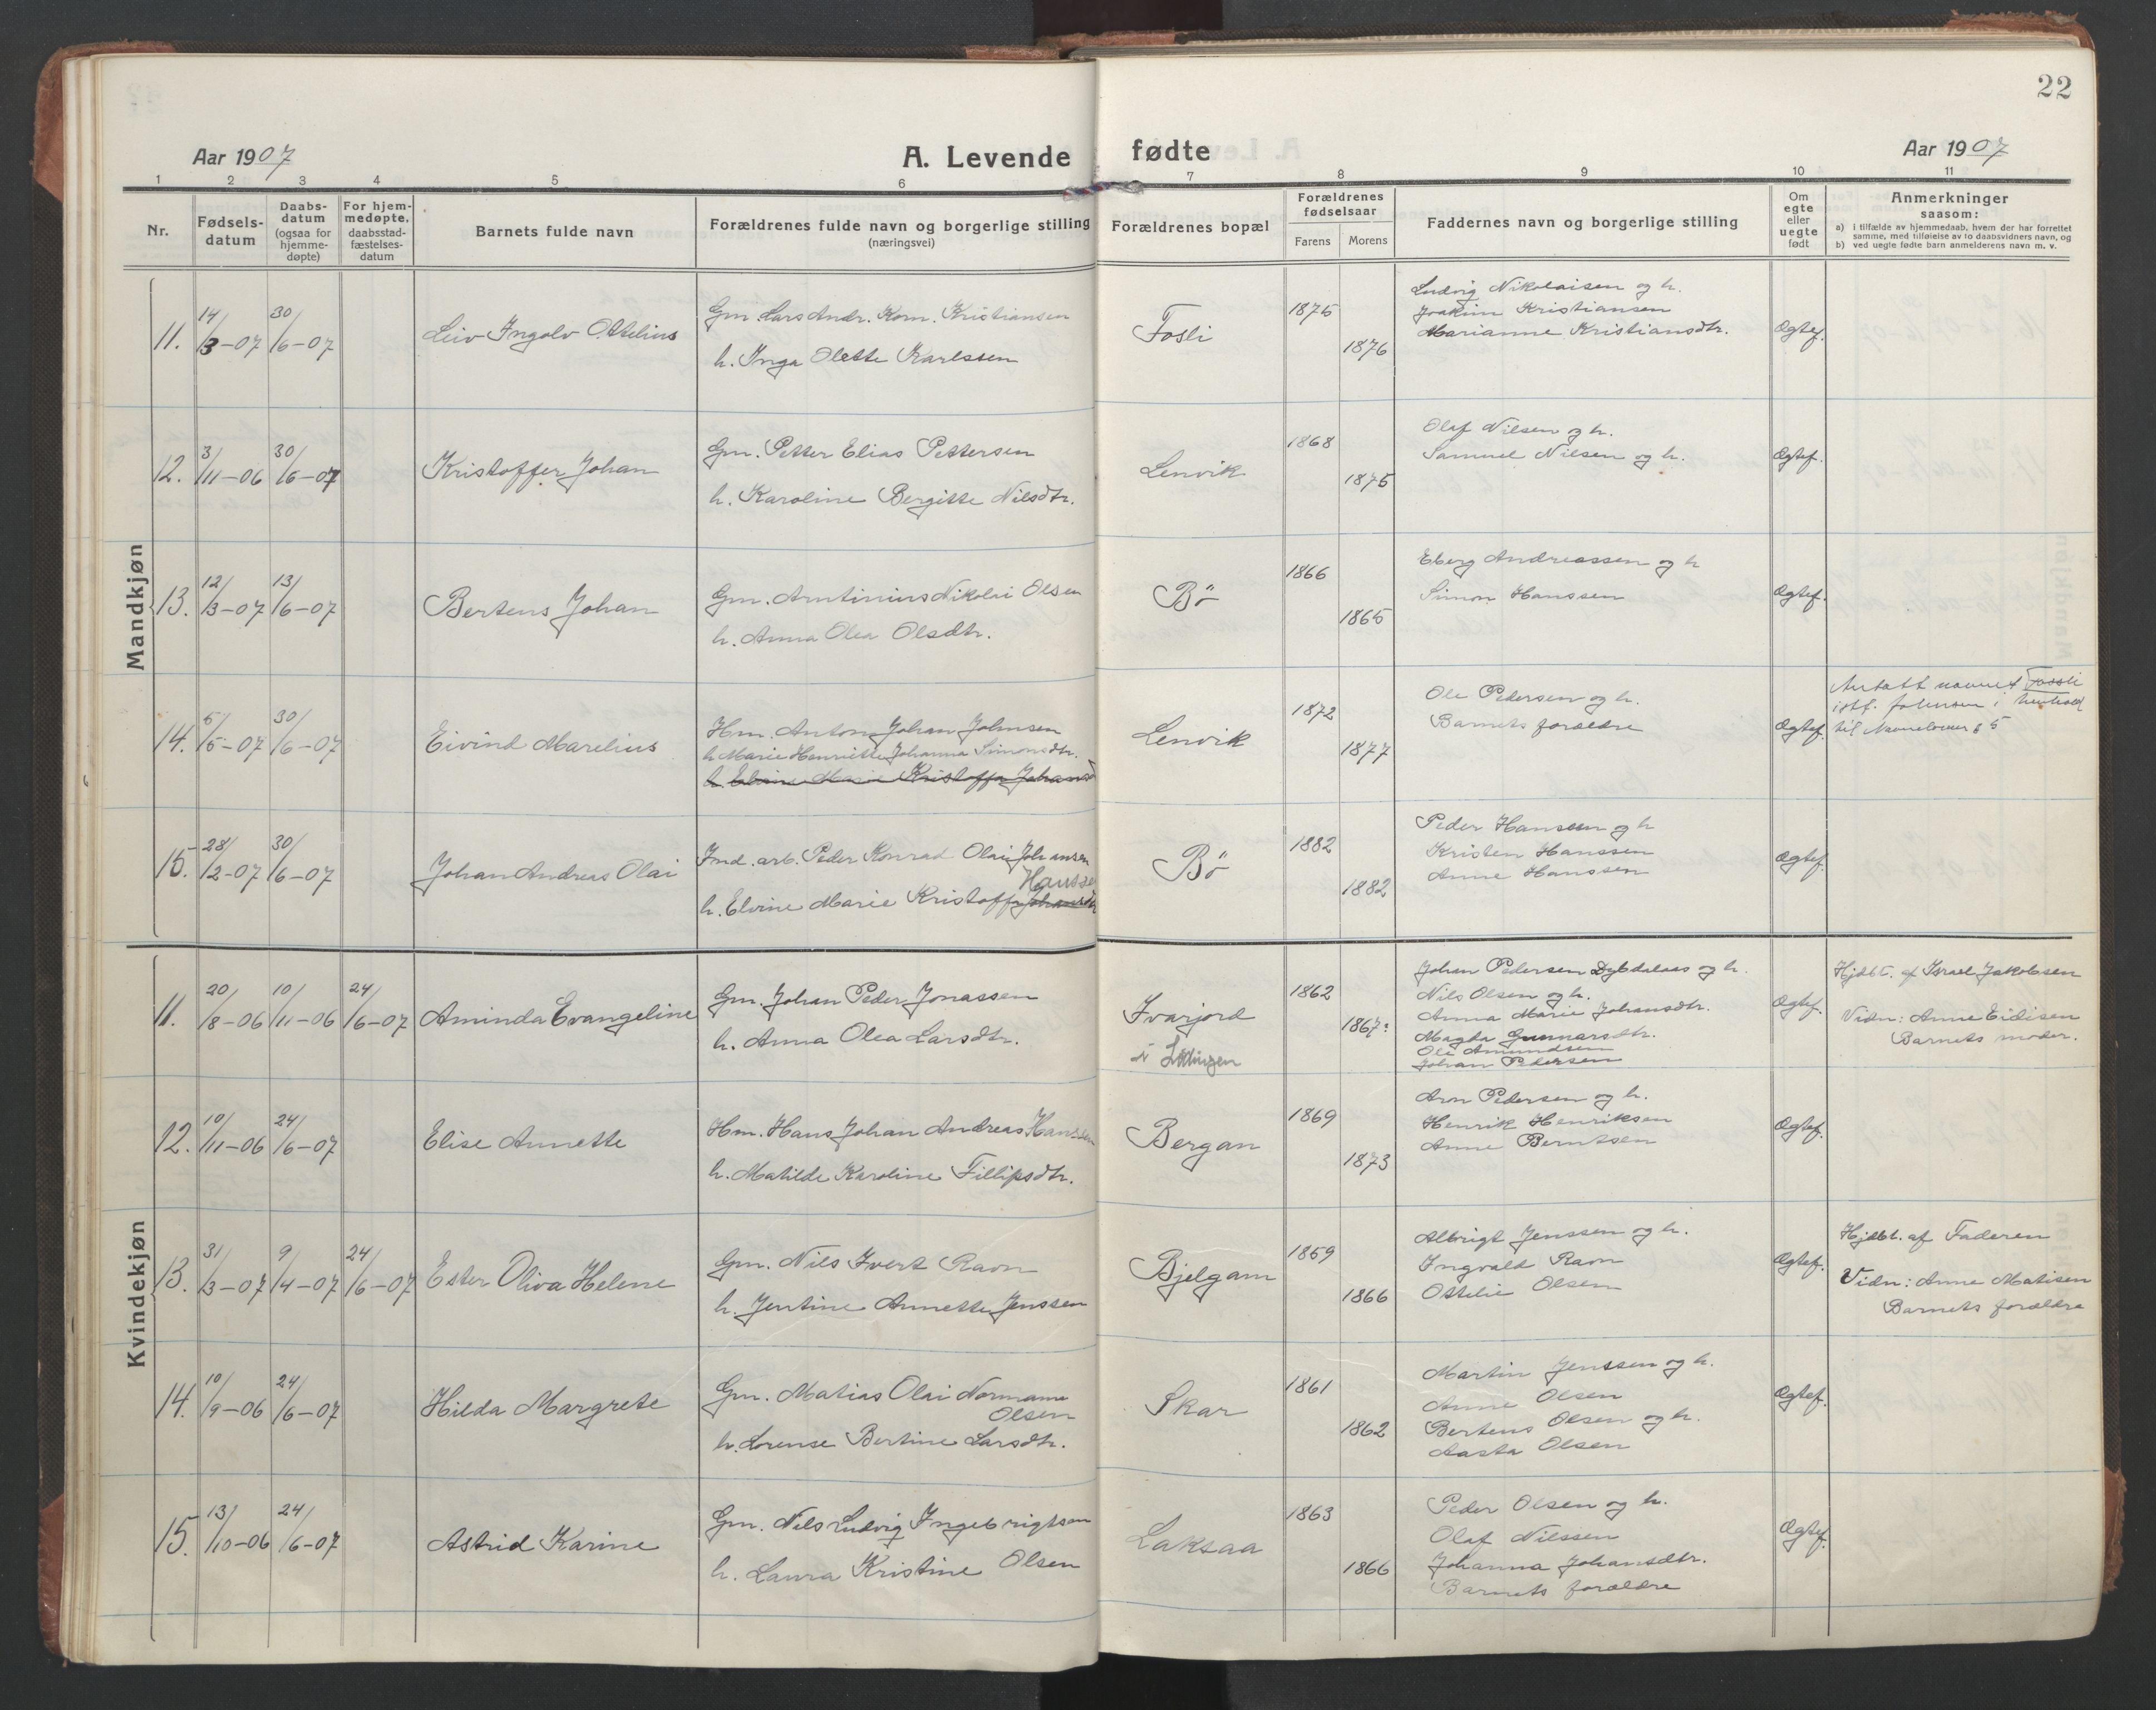 22
Aar 1907
A. Levende fødte
Aar 1907
1 2 3 4 5 6 7 8 9 10 11
Nr.
Fødsels-
datum
Daabs-
datum
(ogsaa for
hjemme-
døpte)
For hjem-
medøpte,
daabsstad-
fæstelses-
datum
Barnets fulde navn
Forældrenes fulde navn og borgerlige stilling
(næringsvei)
Forældrenes bopæl
Forældrenes
fødselsaar
Farens Morens
Faddernes navn og borgerlige stilling
Om
egte
eller
uegte
født
Anmerkninger
saasom:
a) i tilfælde av hjemmedaab, hvem der har forrettet
samme, med tilføielse av to daabsvidners navn, og
b) ved uegte fødte barn anmelderens navn m. v.
Mandkjøn
11. 14/3-07 30/6-07
Leiv Ingolv Ottelius
Gm. Lars Andr. Korn. Kristiansen
h. Inga Olette Karlssen
Fosli
1875
1876
Ludvig Nikolaisen og h.
Joakim Kristiansen
Marianne Kristiansdtr.
Ægtef.
12. 3/11-06 30/6-07
Kristoffer Johan
Gm. Petter Elias Pettersen
h. Karoline Bergitte Nilsdtr.
Lenvik
1868
1875
Olaf Nilsen og h.
Samuel Nilsen og h.
Ægtef.
13. 12/3-07 13/6-07
Bertens Johan
Gm. Arntinius Nikolai Olsen
h. Anna Olea Olsdtr.
Bö
1866
1865
Eberg Andreassen og h
Simon Hanssen
Ægtef.
14. 5/5-07 30/6-07
Eivind Marelius
Hm. Anton Johan Johnsen
h. Marie Henriette Johanna Simonsdtr.
h. Elvine Marie Kristoffa Johansd
Lenvik
1872
1877
Ole Pedersen og h.
Barnets forældre
Ægtef.
Antatt navnet Fossli
istf. Johnsen i henhold
til Navneloven § 5
15. 28/2-07 30/6-07
Johan Andreas Olai
Ind. arb. Peder Konrad Olai Johansen
Hansse
h. Elvine Marie Kristoffa Johansdtr
Bö
1882
1882
Peder Hanssen og h
Kristen Hanssen
Anne Hanssen
Ægtef.
Kvindekjøn
11. 20/8-06 10/11-06 24/6-07
Aminda Evangeline
Gm. Johan Peder Jonassen
h. Anna Olea Larsdtr.
Ivarjord
i Lødingen
1862
1867
Johan Pedersen Dybdalaas og h.
Nils Olsen og h.
Anna Marie Johansdtr.
Magda Gunnarsdtr.
Ole Amundsen
Johan Pedersen
Ægtef.
Hjdbt. af Israel Jakobsen
Vidn: Anne Eidisen
Barnets moder.
12. 10/11-06 24/6-07
Elise Annette
Hm. Hans Johan Andreas Hanssen
h. Matilde Karoline Fillipsdtr.
Bergan
1869
1873
Aron Pedersen og h.
Henrik Henriksen
Anne Berntsen
Ægtef.
13. 31/3-07 9/4-07 24/6-07
Ester Oliva Helene
Gm. Nils Ivert Ravn
h. Jentine Annette Jenssen
Bjelgam
1859
1866
Albrigt Jenssen og h.
Ingvald Ravn
Ottelie Olsen
Ægtef.
Hjdbt. af Faderen
Vidn: Anne Matisen
Barnets forældre
14. 10/9-06 24/6-07
Hilda Margrete
Gm. Matias Olai Normann
Olsen
h. Lorense Bertine Larsdtr.
Skar
1861
1862
Martin Jenssen og h.
Anne Olsen
Bertens Olsen og h.
Aasta Olsen
Ægtef.
15. 13/10-06 24/6-07
Astrid Karine
Gm. Nils Ludvig Ingebrigtsen
h. Laura Kristine Olsen
Laksaa
1863
1866
Peder Olsen og h.
Olaf Nilssen
Johanna Johansdtr.
Barnets forældre
Ægtef.